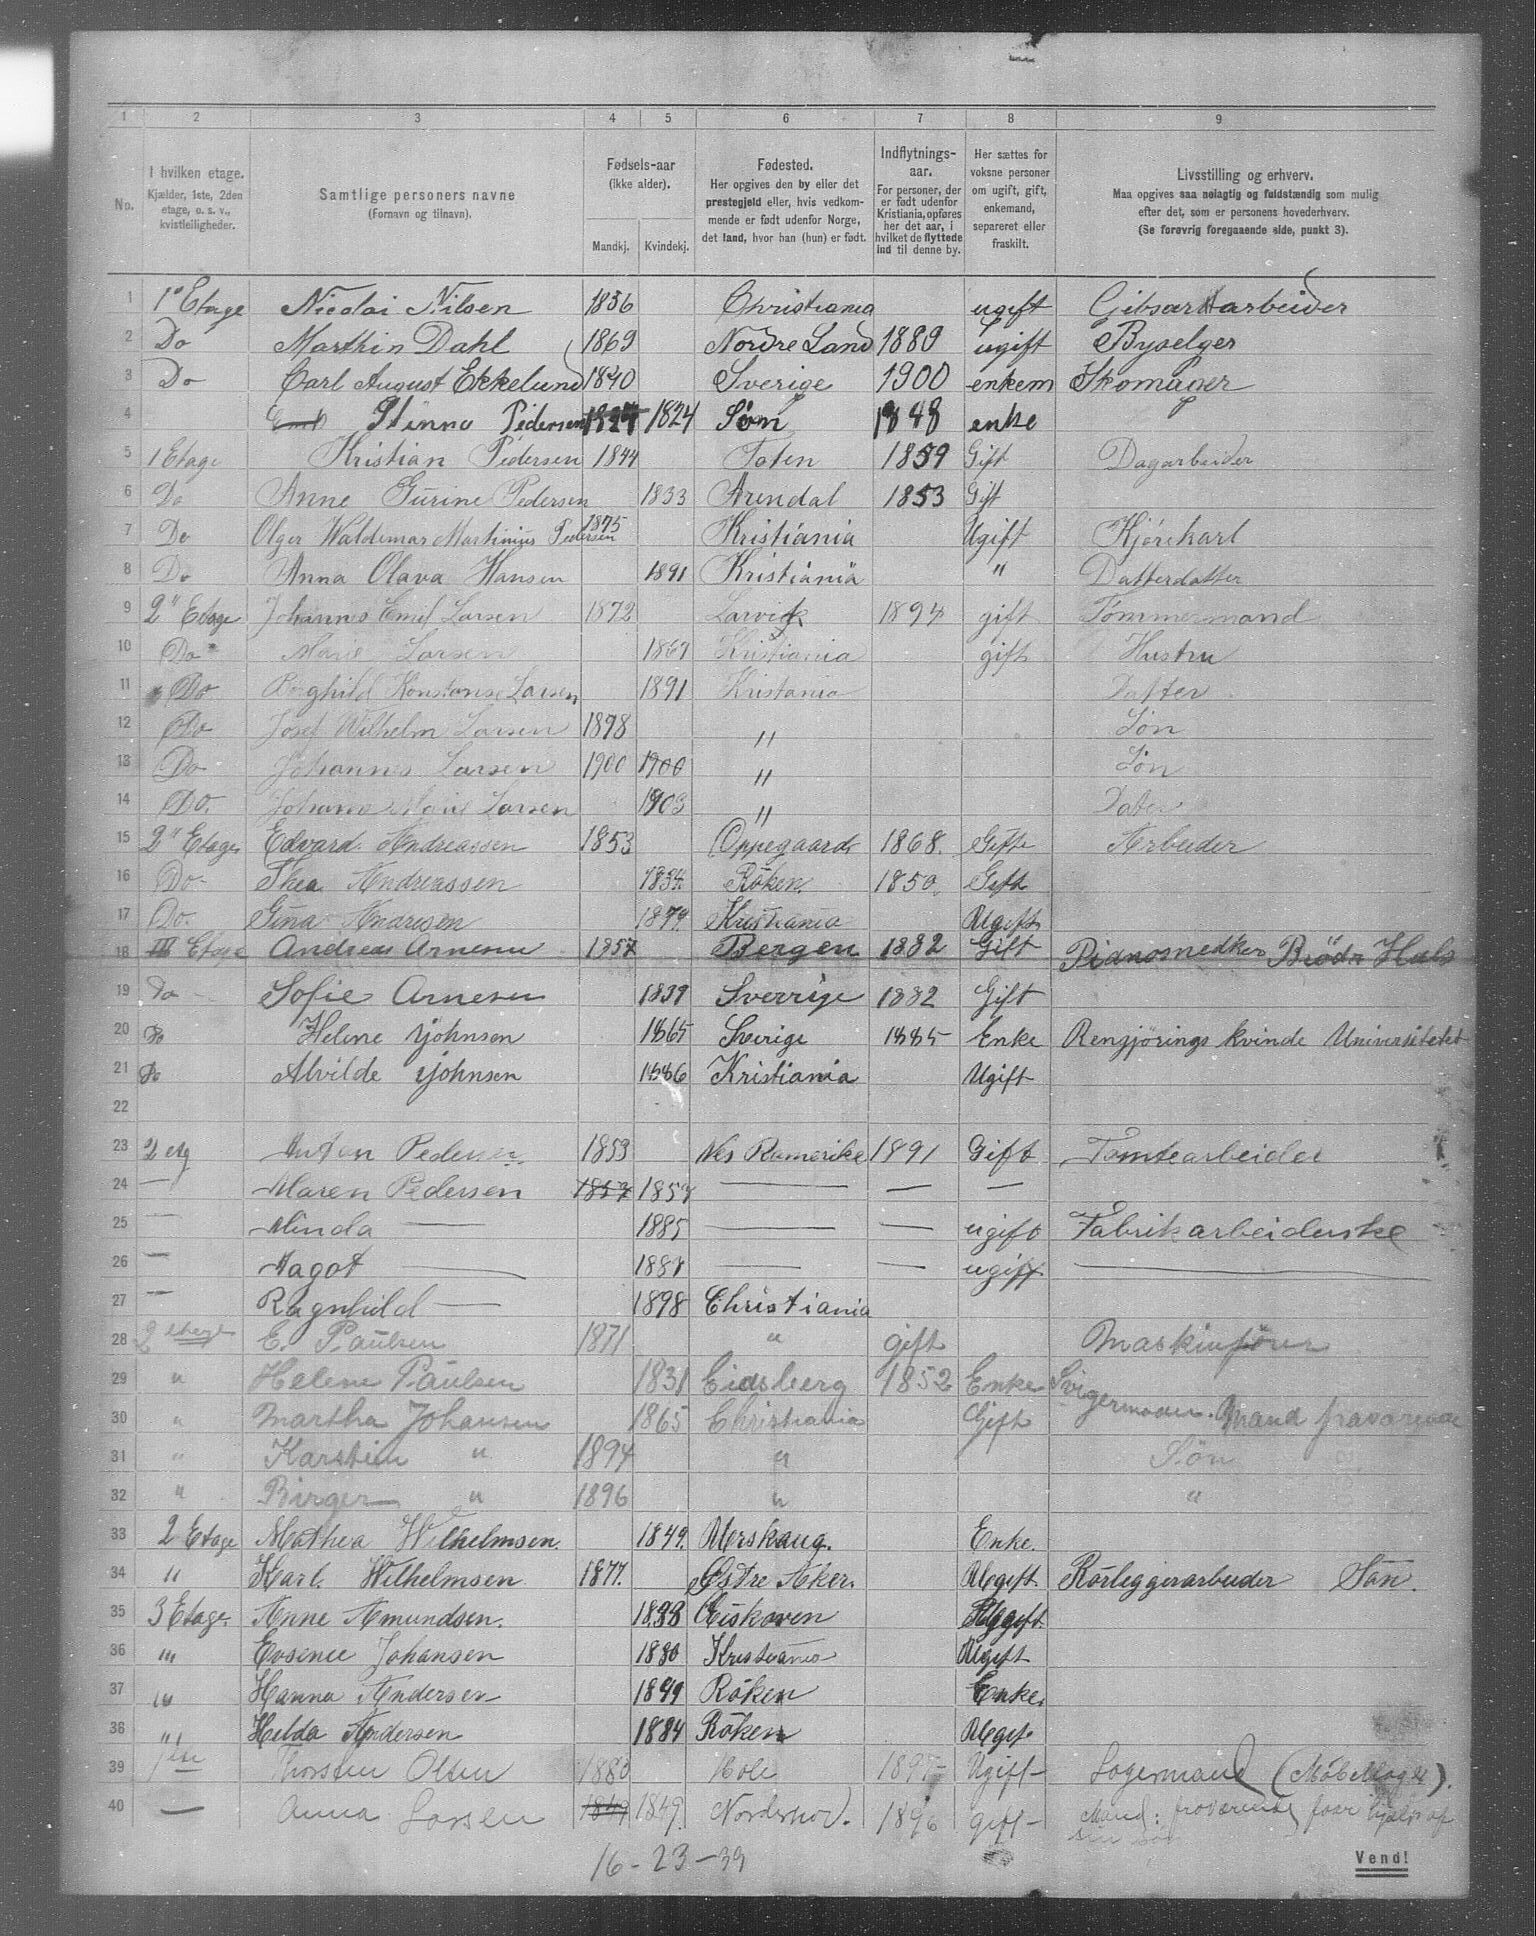 1 2 3 4 5 6 7 8 9
No.
I hvilken etage.
Kjælder, 1ste, 2den
etage, o. s. v.,
kvistleiligheder.
Samtlige personers navne
(Fornavn og tilnavn).
Fødsels-aar
(ikke alder).
Mandkj. Kvindekj.
Fødested.
Her opgives den by eller det
prestegjeld eller, hvis vedkom-
mende er født udenfor Norge,
det land, hvor han (hun) er født.
Indflytnings-
aar.
For personer, der
er født udenfor
Kristiania, opføres
her det aar, i
hvilket de flyttede
ind til denne by.
Her sættes for
voksne personer
om ugift, gift,
enkemand,
separeret eller
fraskilt.
Livsstilling og erhverv.
Maa opgives saa nøiagtig og fuldstændig som mulig
efter det, som er personens hovederhverv.
(Se forøvrig foregaaende side, punkt 3).
1 1ste Etage Nicolai Nilsen 1836 Christiania ugift arbeider
2 Do Marthin Dahl 1869 Nordre Land 1889 ugift Byselger
3 Do Carl August Ekkelund 1840 Sverige 1900 enkem Skomager
4 Stinna Pedersen 1824 Søn 1848 enke
5 1 Etage Kristian Pedersen 1844 Toten 1859 Gift Dagarbeider
6 Do Anne Gurine Pedersen 1833 Arendal 1853 Gift
7 Do Olger Waldemar Martinius Pedersen 1875 Kristiania Ugift Kjørekarl
8 Do Anna Olava Hansen 1891 Kristiania " Datterdatter
9 2" Etage Johannes Emil Larsen 1872 Larvik 1894 gift Tømmermand
10 Do Marie Larsen 1867 Kristiania gift Hustru
11 Do Borghild Konstanse Larsen 1891 Kristania Datter
12 Do Josef Wilhelm Larsen 1898 " Søn
13 Do Johannes Larsen 1900 1900 " Søn
14 Do. Johanna Marie Larsen 1903 " Dater
15 2" Etage Edvard Andreassen 1853 Oppegaard 1868. Gift Arbeider
16 Do- Thea Andreassen 1854 Røken. 1850. Gift
17 Do. Gina Andresen 1879. Kristiania Ugift
18 III Etage Andreas Arnesen 1857 Bergen 1882 Gift Pianosnedker Brødr Hals
19 Do Sofie Arnesen 1839 Sverrige 1882 Gift
20 Do Helene Johnsen 1865 Sverige 1885 Enke Rengjørings kvinde Universitetet
21 Do Alvilde Johnsen 1886 Kristiania Ugift
22
23 2 etg Anton Pedersen 1853 Nes Romerike 1891 Gift Tomtearbeider
24 — Maren Pedersen 1857 1857 — — —
25 — Minda — 1885 — — ugift Fabrikarbeiderske
26 — Magot — 1887 — — ugift —
27 — Ragnhild — 1898 Christiania
28 2 etage E. Paulsen 1871 " gift Maskinfører
29 " Helene Paulsen 1831 Eidsberg 1852 Enke Svigermoder.
30 " Martha Johansen 1865 Christiania Gift Mand fraværende
31 " Karstein " 1894 " Søn
32 " Birger " 1896 " "
33 2 Etage Mathea Wilhelmsen. 1849. Urskaug. Enke.
34 " Karl. Wilhelmsen 1877. Østre Aker. Ugift Rørleggerarbeider Søn.
35 3 Etage. Anne Amundsen. 1838 Eiskoven Ugift.
36 " Evsenie Johansen 1880 Kristiania Ugift
37 " Hanna Andersen 1849 Røken Enke.
38 " Helda Andersen 1884 Røken Ugift
39 1ste Thorsten Olsen 1880 Hole 1895 Ugift Lagermand (Møbellager).
40 — Anna Larsen 1849 1849. Nordenod. 1896 gift Mand: fraværende faar hjælp af
sin søn
16 - 23 - 39
Vend!